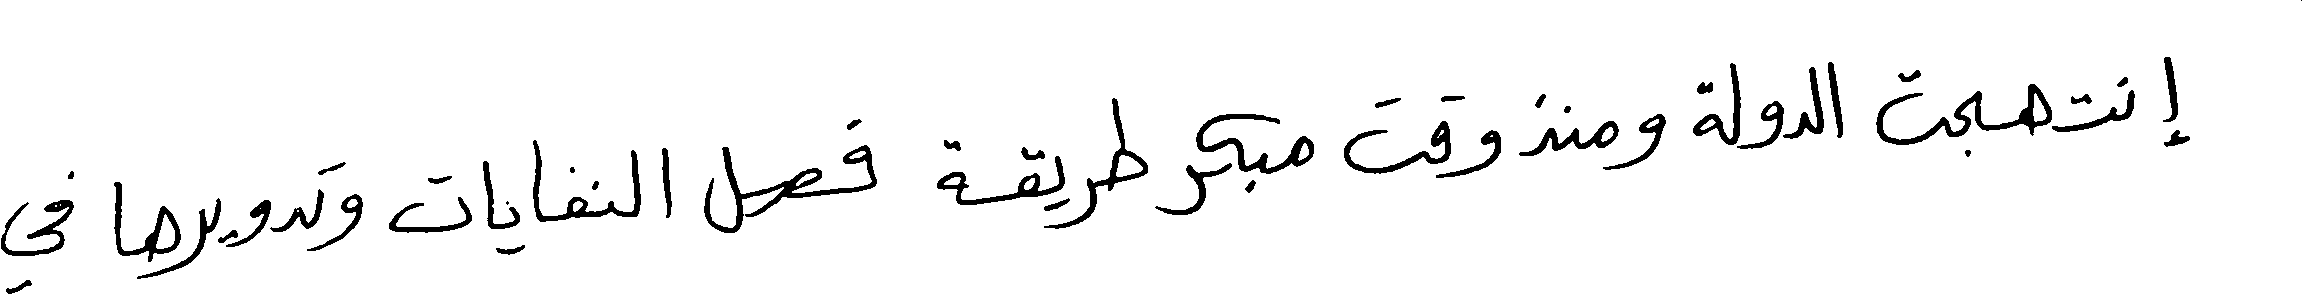 إنتهجت الدولة ومنذ وقت مبكر طريقة فصل النفايات وتدويرها في